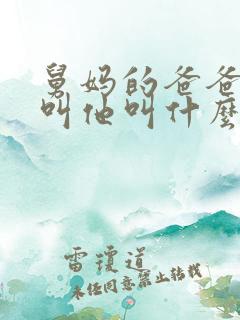 舅妈的爸爸
叫他叫什麽
雷琼道
未经同意禁止转载